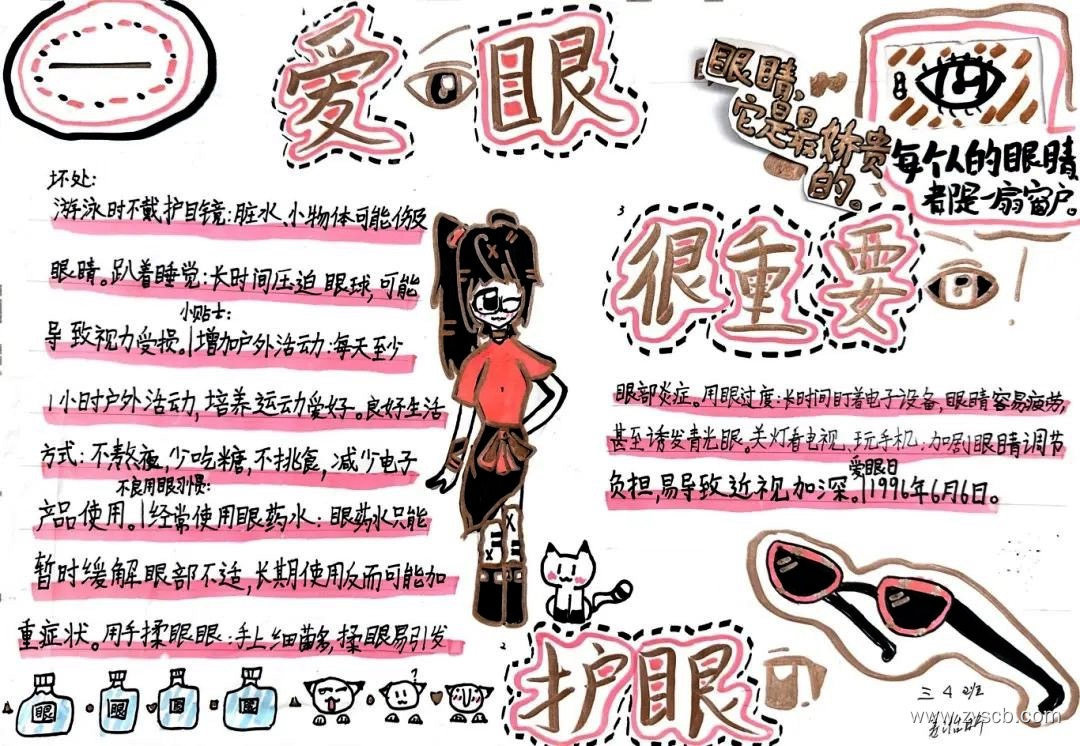 爱眼
眼睛,
它是最娇贵
的。
每个人的眼睛
都是一扇窗户。
坏处:
游泳时不戴护目镜:脏水、小物体可能伤及
眼睛。趴着睡觉:长时间压迫眼球,可能
小贴士:
导致视力受损。|增加户外活动:每天至少
1小时户外活动,培养运动爱好。良好生活
方式:不熬夜,少吃糖,不挑食,减少电子
不良用眼习惯:
产品使用。|经常使用眼药水:眼药水只能
暂时缓解眼部不适,长期使用反而可能加
重症状。用手揉眼眼:手上细菌多,揉眼易引发
3
很重要
眼部炎症。用眼过度:长时间盯着电子设备,眼睛容易疲劳,
甚至诱发青光眼。关灯看电视、玩手机:加剧眼睛调节
爱眼日
负担,易导致近视加深。|1996年6月6日。
2
护眼
眼
三 4 班
www.zyscb.com